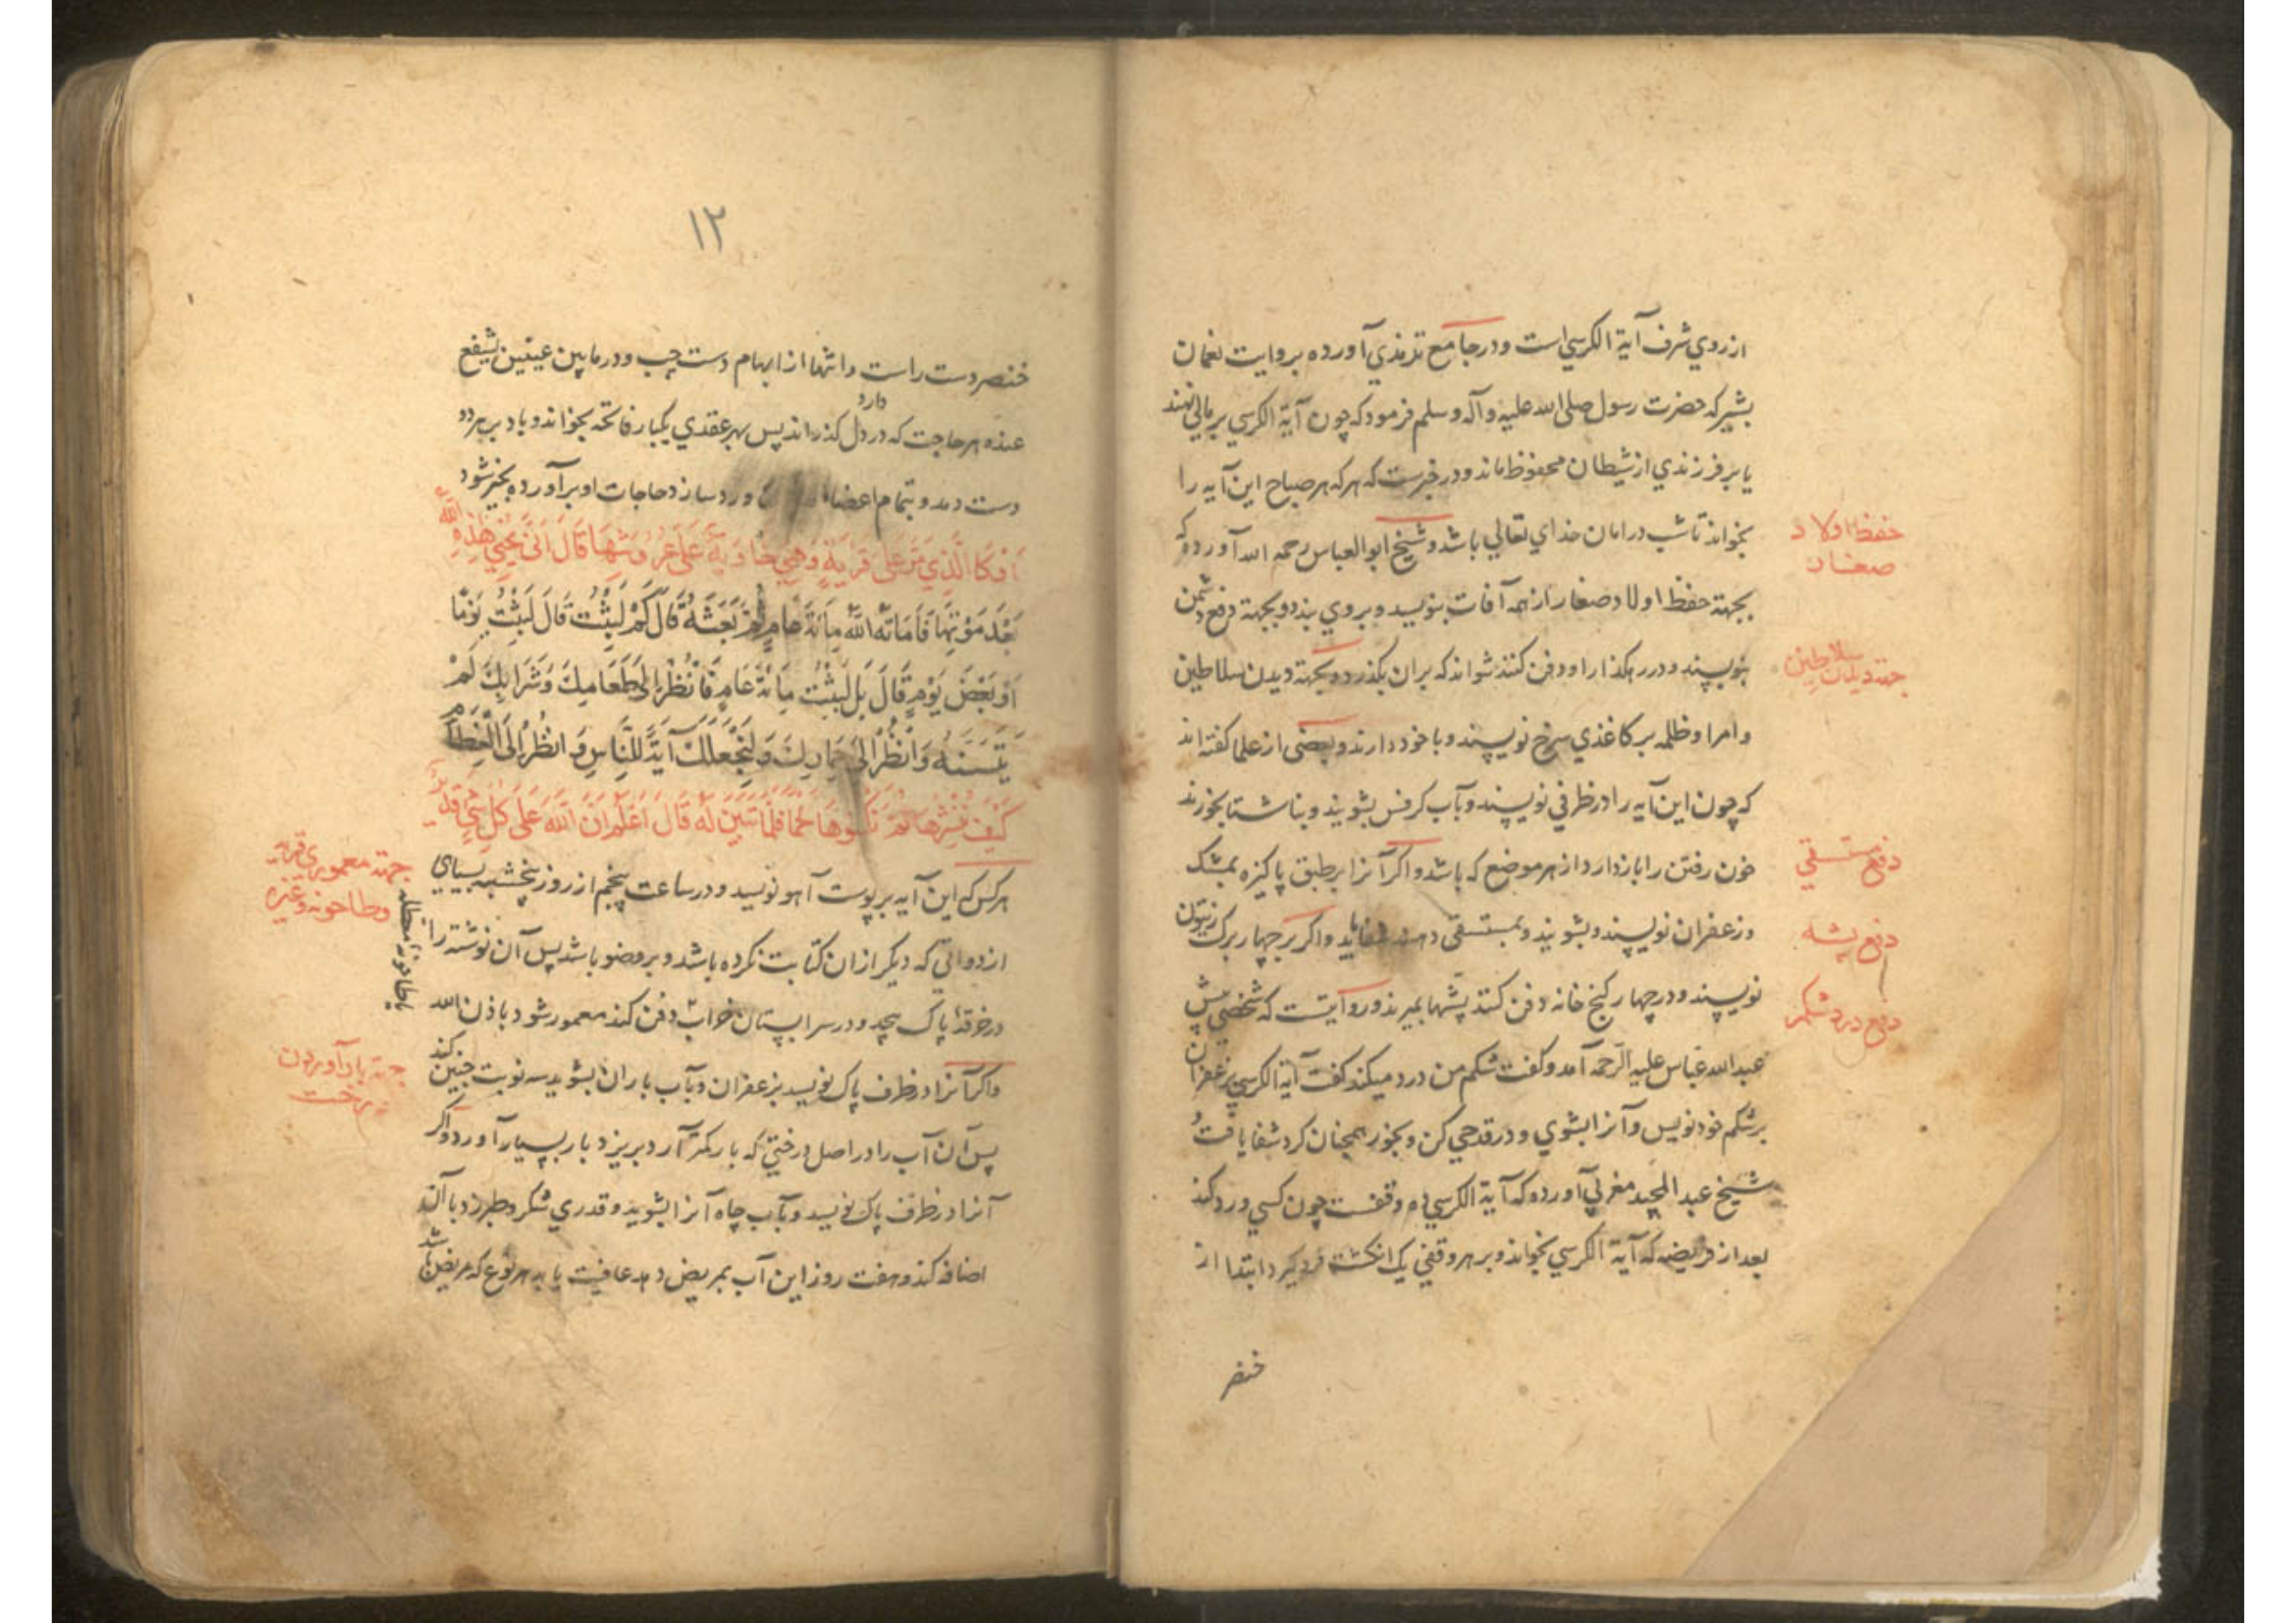 از روي شرف آية الكرسي است و در جامع ترمذي آورده بروايت نعمان
بشير كه حضرت رسول صلى الله عليه وآله وسلم فرمود كه چون آية الكرسي بر مالي نهند
يا بر فرزندي از شيطان محفوظ ماند و در خبرست كه هر كه هر صباح اين آيه را
بخواند تا شب در امان خداي تعالي باشد و شيخ ابو العباس رحمه الله آورده كه
حفظ اولاد صغار
بجهتة حفظ اولاد صغار از همه آفات بنويسد و بر وي بندد و بجهتة دفع دشمن
بنويسند و در رهكذار او دفن كنند نتواند كه بران بكذرد و بجهتة ديدن سلاطين
جهتة ديدن سلاطين
و امرا و ظلمه بر كاغذي سرخ نويسند و با خود دارند و بعضى از علما كفته اند
كه چون اين آيه را در ظرفي نويسند و بآب كرفس بشويند و بناشتا بخورند
خون رفتن را باز دارد از هر موضع كه باشد و اكر آنرا بر طبق پاكيزه بمشك
دفع مستسقي
و زعفران نويسند و بشويند و بمستسقى دهند شفا يابد و اكر بر چهار برك زيتون
دفع پشه
نويسند و در چهار كنج خانه دفن كنند پشها بميرند و روايتست كه شخصي پيش
دفع درد شكم
عبد الله عباس عليه الرحمه آمد و كفت شكم من درد ميكند كفت آية الكرسي بزعفران
بر شكم خود نويس و آنرا بشوي و در قدحي كن و بخور همچنان كرد شفا يافت و
شيخ عبد المجيد مغربي آورده كه آية الكرسي ده وقفست چون كسي ورد كند
بعد از فريضه كه آية الكرسي بخواند و بر هر وقفي يك انكشت فرو كيرد ابتدا از
خنصر
١٢
خنصر دست راست و انتها از ابهام دست چپ و در ما بين عينين يشفع
عنده هر حاجت كه دارد در دل كذراند پس بهر عقدي يكبار فاتحه بخواند و باد بر هر دو
دست دمد و بتمام اعضا ورد سازد حاجات او برآورده بخير شود
اَوْ كَالَّذِي مَرَّ عَلَى قَرْيَةٍ وَهِيَ خَاوِيَةٌ عَلَى عُرُوشِهَا قَالَ اَنَّى يُحْيِي هَذِهِ اللَّهُ
بَعْدَ مَوْتِهَا فَاَمَاتَهُ اللَّهُ مِائَةَ عَامٍ ثُمَّ بَعَثَهُ قَالَ كَمْ لَبِثْتَ قَالَ لَبِثْتُ يَوْمًا
اَوْ بَعْضَ يَوْمٍ قَالَ بَلْ لَبِثْتَ مِائَةَ عَامٍ فَانْظُرْ اِلَى طَعَامِكَ وَشَرَابِكَ لَمْ
يَتَسَنَّهْ وَانْظُرْ اِلَى حِمَارِكَ وَلِنَجْعَلَكَ آيَةً لِلنَّاسِ وَانْظُرْ اِلَى الْعِظَامِ
كَيْفَ نُنْشِزُهَا ثُمَّ نَكْسُوهَا لَحْمًا فَلَمَّا تَبَيَّنَ لَهُ قَالَ اَعْلَمُ اَنَّ اللَّهَ عَلَى كُلِّ شَيْءٍ قَدِيرٌ
هر كس كه اين آيه بر پوست آهو نويسد و در ساعت پنجم از روز پنجشنبه بسياي
جهتة معموري قريه
وطاحونه وغيره
از دواتي كه ديكر ازان كتابت نكرده باشد و بر وضو باشد پس آن نوشته را
در خرقهٔ پاك پيچد و در سرابستان خراب دفن كند معمور شود باذن الله
واكر آنرا در ظرف پاك نويسد بزعفران و بآب باران بشويد سه نوبت چنين كند
جهتة بار آوردن
درخت
پس آن آب را در اصل درختي كه بار كمتر آرد بريزد بار بسيار آورد و اكر
آنرا در ظرف پاك نويسد و بآب چاه آنرا بشويد و قدري شكر و طبرزد با آن
اضافه كند و هفت روز اين آب بمريض دهد عافيت يابد هر نوع كه مريض باشد